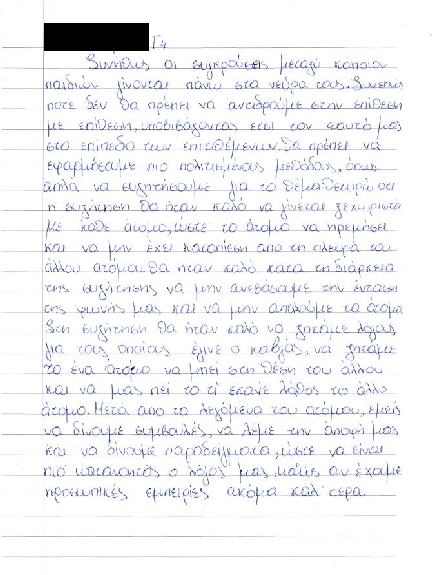 Γ4
Συνήθως οι συγκρούσεις μεταξύ κάποιων
παιδιών γίνονται πάνω στα νεύρα τους. Συνεπώς
ποτέ δεν θα πρέπει να αντιδρούμε στην επίθεση
με επίθεση, υποβιβάζοντας έτσι τον εαυτό μας
στο επίπεδο των επιτιθέμενων. Θα πρέπει να
εφαρμόσουμε πιο πολιτισμένους μεθόδους, όπως
απλά να συζητήσουμε για το θέμα. Θεωρώ οτι
η συζήτηση θα ήταν καλό να γίνεται ξεχωριστά
με κάθε άτομο, ώστε το άτομο να ηρεμήσει
και να μην έχει καταπίεση από τη πλευρά του
άλλου ατόμου. Θα ήταν καλό κατά τη διάρκεια
της συζήτησης να μην ανεβάσουμε την ένταση
της φωνής μας και να μην απειλούμε τα άτομα
Στη συζήτηση θα ήταν καλό να ζητάμε λόγους
για τους οποίους έγινε ο καβγάς, να ζητάμε
το ένα άτομο να μπει στη θέση του άλλου
και να μας πεί το τί έκανε λάθος το άλλο
άτομο. Μετά απο τα λεγόμενα του ατόμου, εμείς
να δίνουμε συμβουλές, να λέμε την άποψή μας
και να δίνουμε παραδείγματα, ώστε να είναι
πιο κατανοητός ο λόγος μας, καθώς αν έχουμε
προσωπικές εμπειρίες ακόμα καλύτερα.